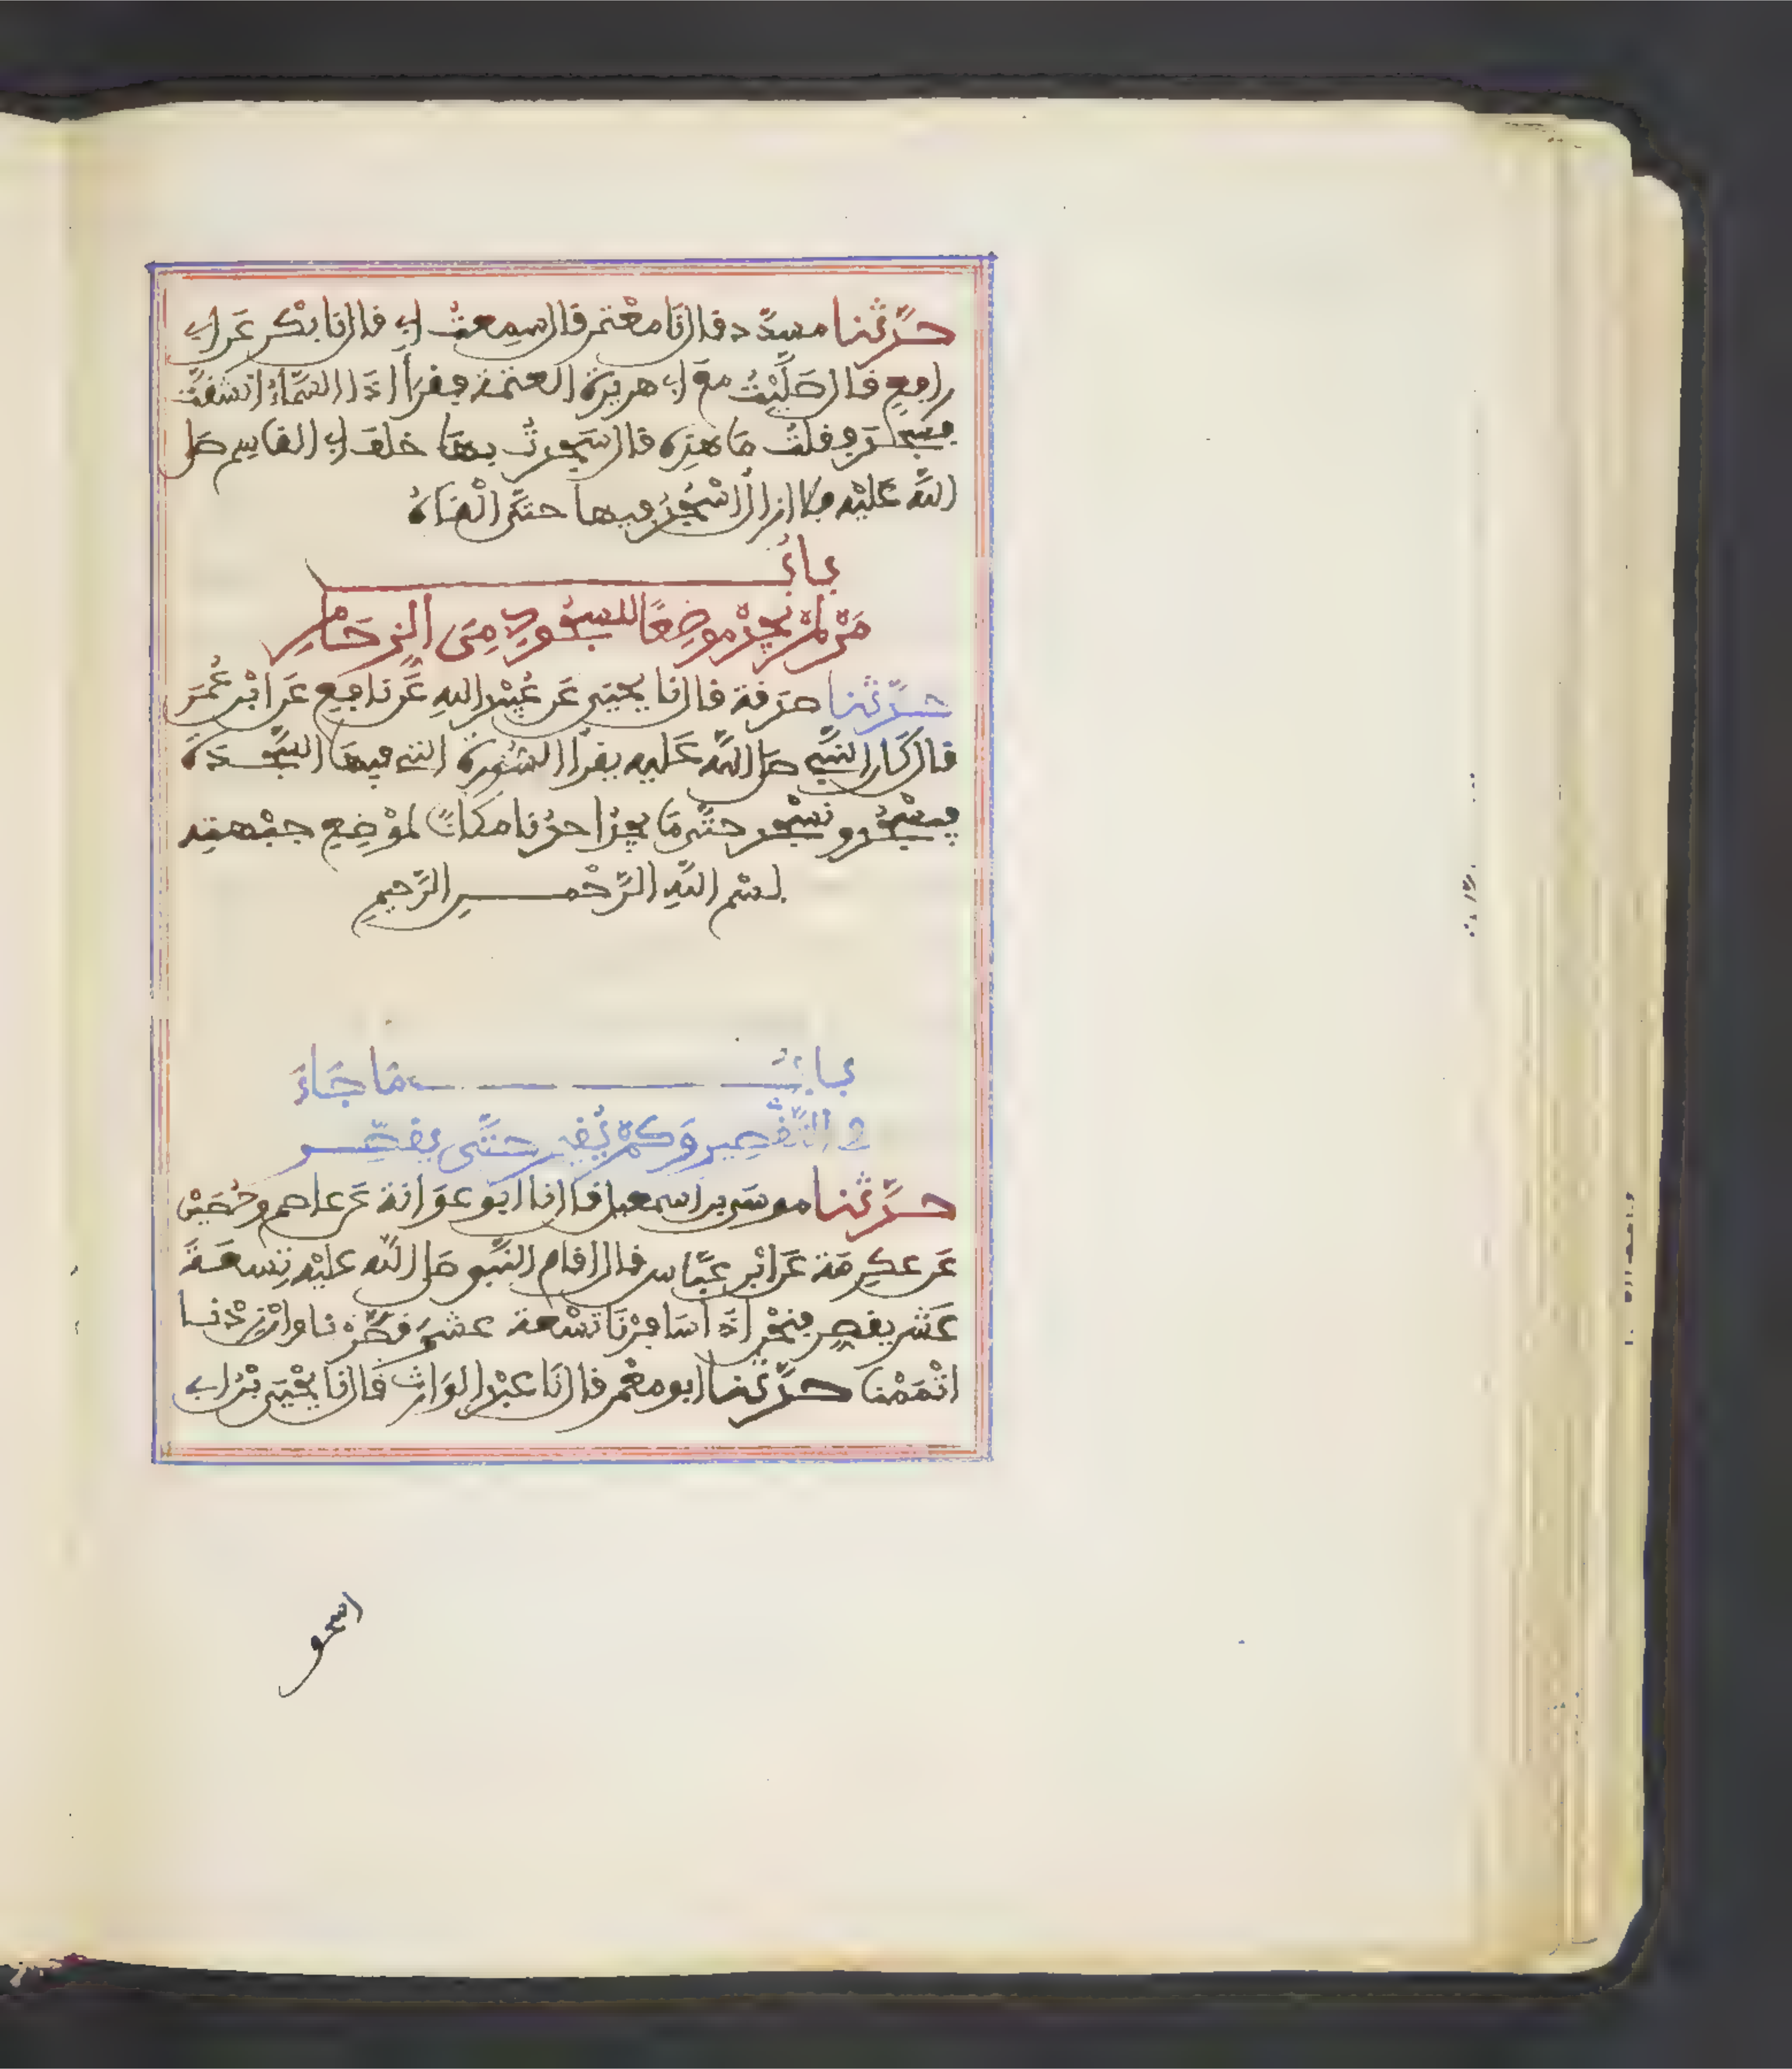 حدّثنا مسدّد قال نا معْتمر قال سمعتُ ابي قال نا بكْر عَن ابي
رافِعٍ قال صَلَّيْتُ معَ ابي هريرة العتمة فقرأ اذَا السَّمَاءُ انشقّتْ
فسجَدَ فقلتُ مَا هذِه قال سَجدتُ بهَا خلفَ ابي القاسِم صَلى
اللهُ عَليْه فلا ازالُ اسْجُدُ فيها حتَّى الْقَاهُ
بابُ
مَنْ لمْ يجِدْ موضِعًا للسجُودِ مِنَ الزحَامِ
حدّثنا صدَقة قال نا يحْيَى عَن عُبَيْد اللهِ عَن نافِعٍ عَن ابْنِ عُمَرَ
قال كَان النبيّ صَلى اللهُ عَليه يقرأ السُّورة التي فيهَا السَّجْدَة
فيسْجُد ونسْجد حتَّى مَا يجِدُ احدُنا مكانًا لموْضِعِ جبْهتِه
بسْم اللهِ الرَّحْمنِ الرَّحيمِ
بابُ مَا جَاءَ
في التَّقْصِير وَكمْ يُقِيم حتَّى يقصِّر
حدّثنا موسَى بن اسمعيل قال نا ابُو عوَانة عَن عاصم وحُصَيْن
عَن عكرِمَة عَن ابْنِ عبَّاس قال اقام النَّبي صَلى اللهُ عليْه تِسعَةَ
عَشر يقصر فنحْن اذَا سَافرْنَا تسْعة عشَرَ قصَّرْنا وانْ زدْنا
اتْمَمْنا حدّثنا ابو معْمر قال نَا عبْد الوَارث قال نَا يحْيَى بْنُ ابي
اسحو